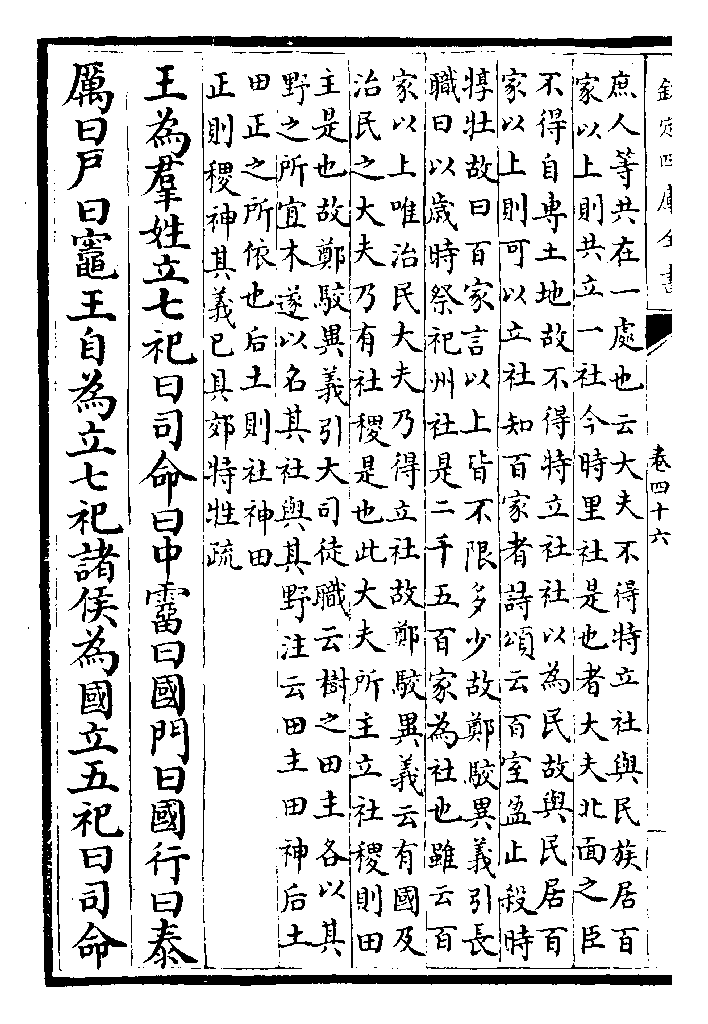 欽定四庫全書
卷四十六
庶人等共在一處也云大夫不得特立社與民族居百
家以上則共立一社今時里社是也者大夫北面之臣
不得自專土地故不得特立社社以為民故與民居百
家以上則可以立社知百家者詩頌云百室盈止殺時
犉牡故曰百家言以上皆不限多少故鄭駮異義引長
職曰以歲時祭祀州社是二千五百家為社也雖云百
家以上唯治民大夫乃得立社故鄭駮異義云有國及
治民之大夫乃有社稷是也此大夫所主立社稷則田
主是也故鄭駮異義引大司徒職云樹之田主各以其
野之所宜木遂以名其社與其野注云田主田神后土
田正之所依也后土則社神田
正則稷神其義已具郊特牲疏
王為羣姓立七祀曰司命曰中霤曰國門曰國行曰泰
厲曰戶曰竈王自為立七祀諸侯為國立五祀曰司命